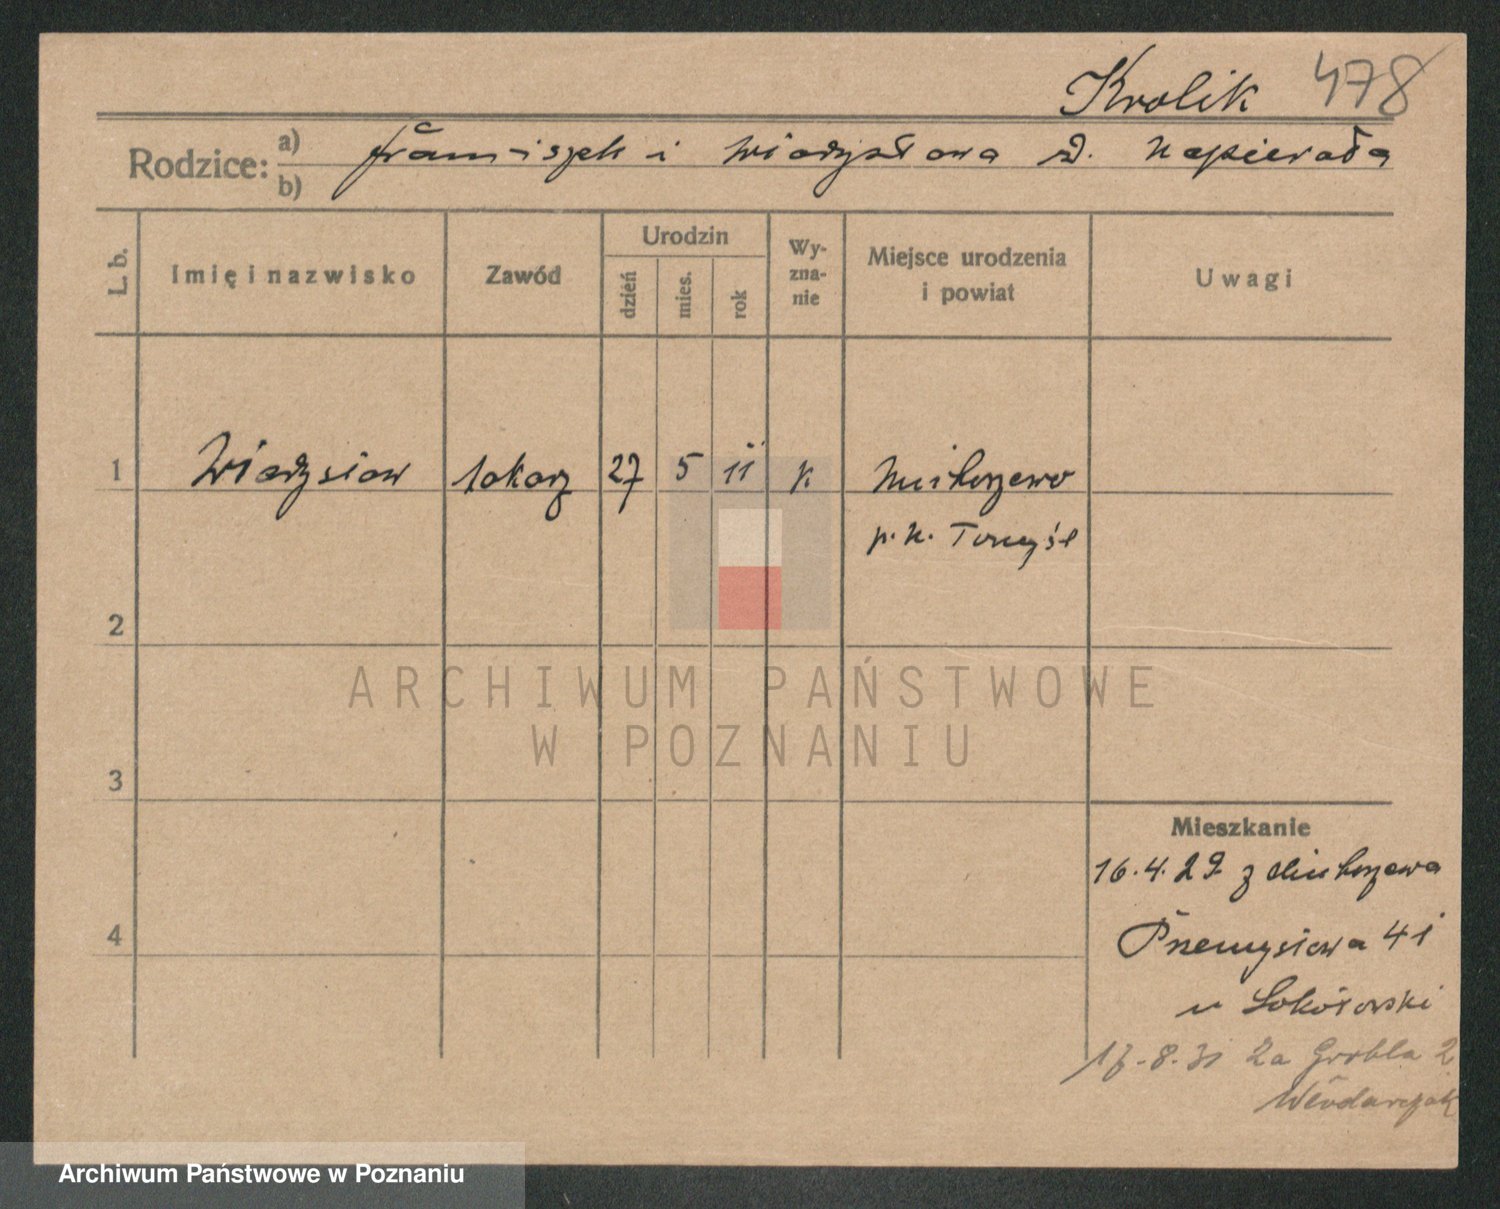 Krolik 478
Rodzice: a) Franciszek i Władysława d. Napierała
b)
L. b.
Imię i nazwisko
Zawód
Urodzin
dzień
mies.
rok
Wy-
zna-
nie
Miejsce urodzenia
i powiat
Uwagi
1 Władysław tokarz 27 5 11 k
p. n. Tomyśl
2
3
4
Mieszkanie
16.4.29 z
Przemysłowa 41
u Sokołowski
17.8.31 Za Grobla 2
Włodarczak
ARCHIWUM PAŃSTWOWE
W POZNANIU
Archiwum Państwowe w Poznaniu